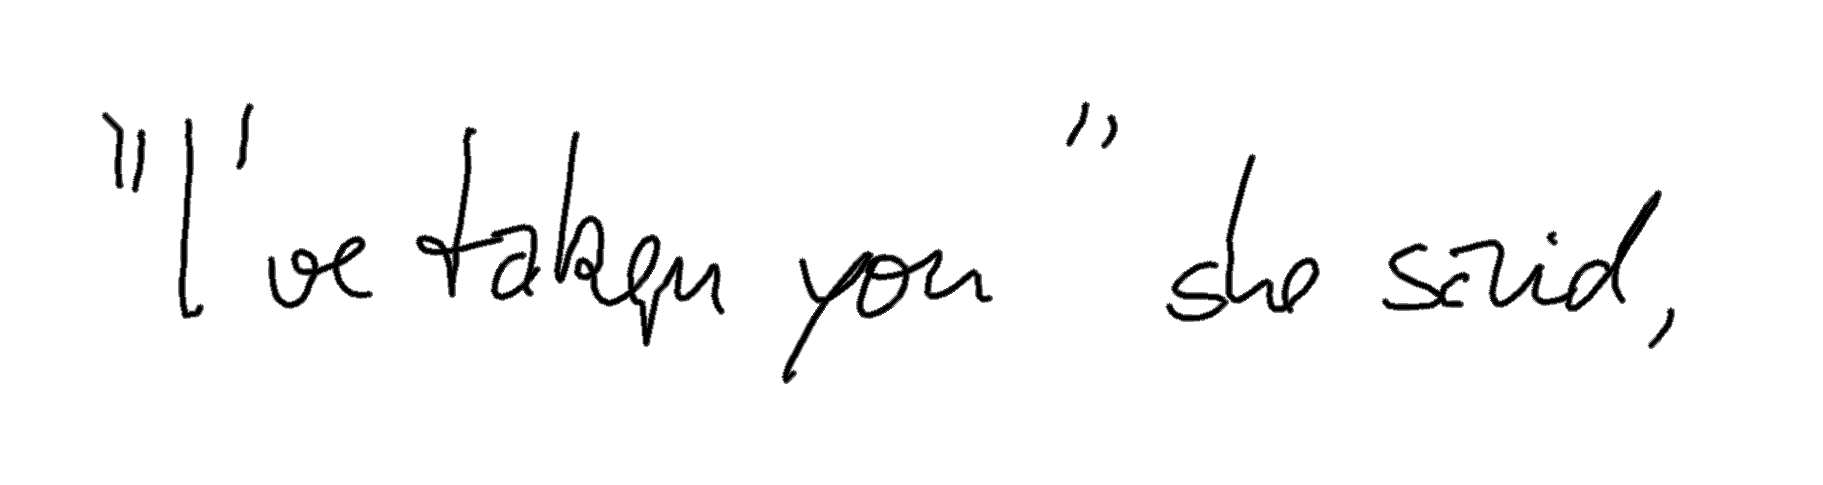 "I've taken you" she said,